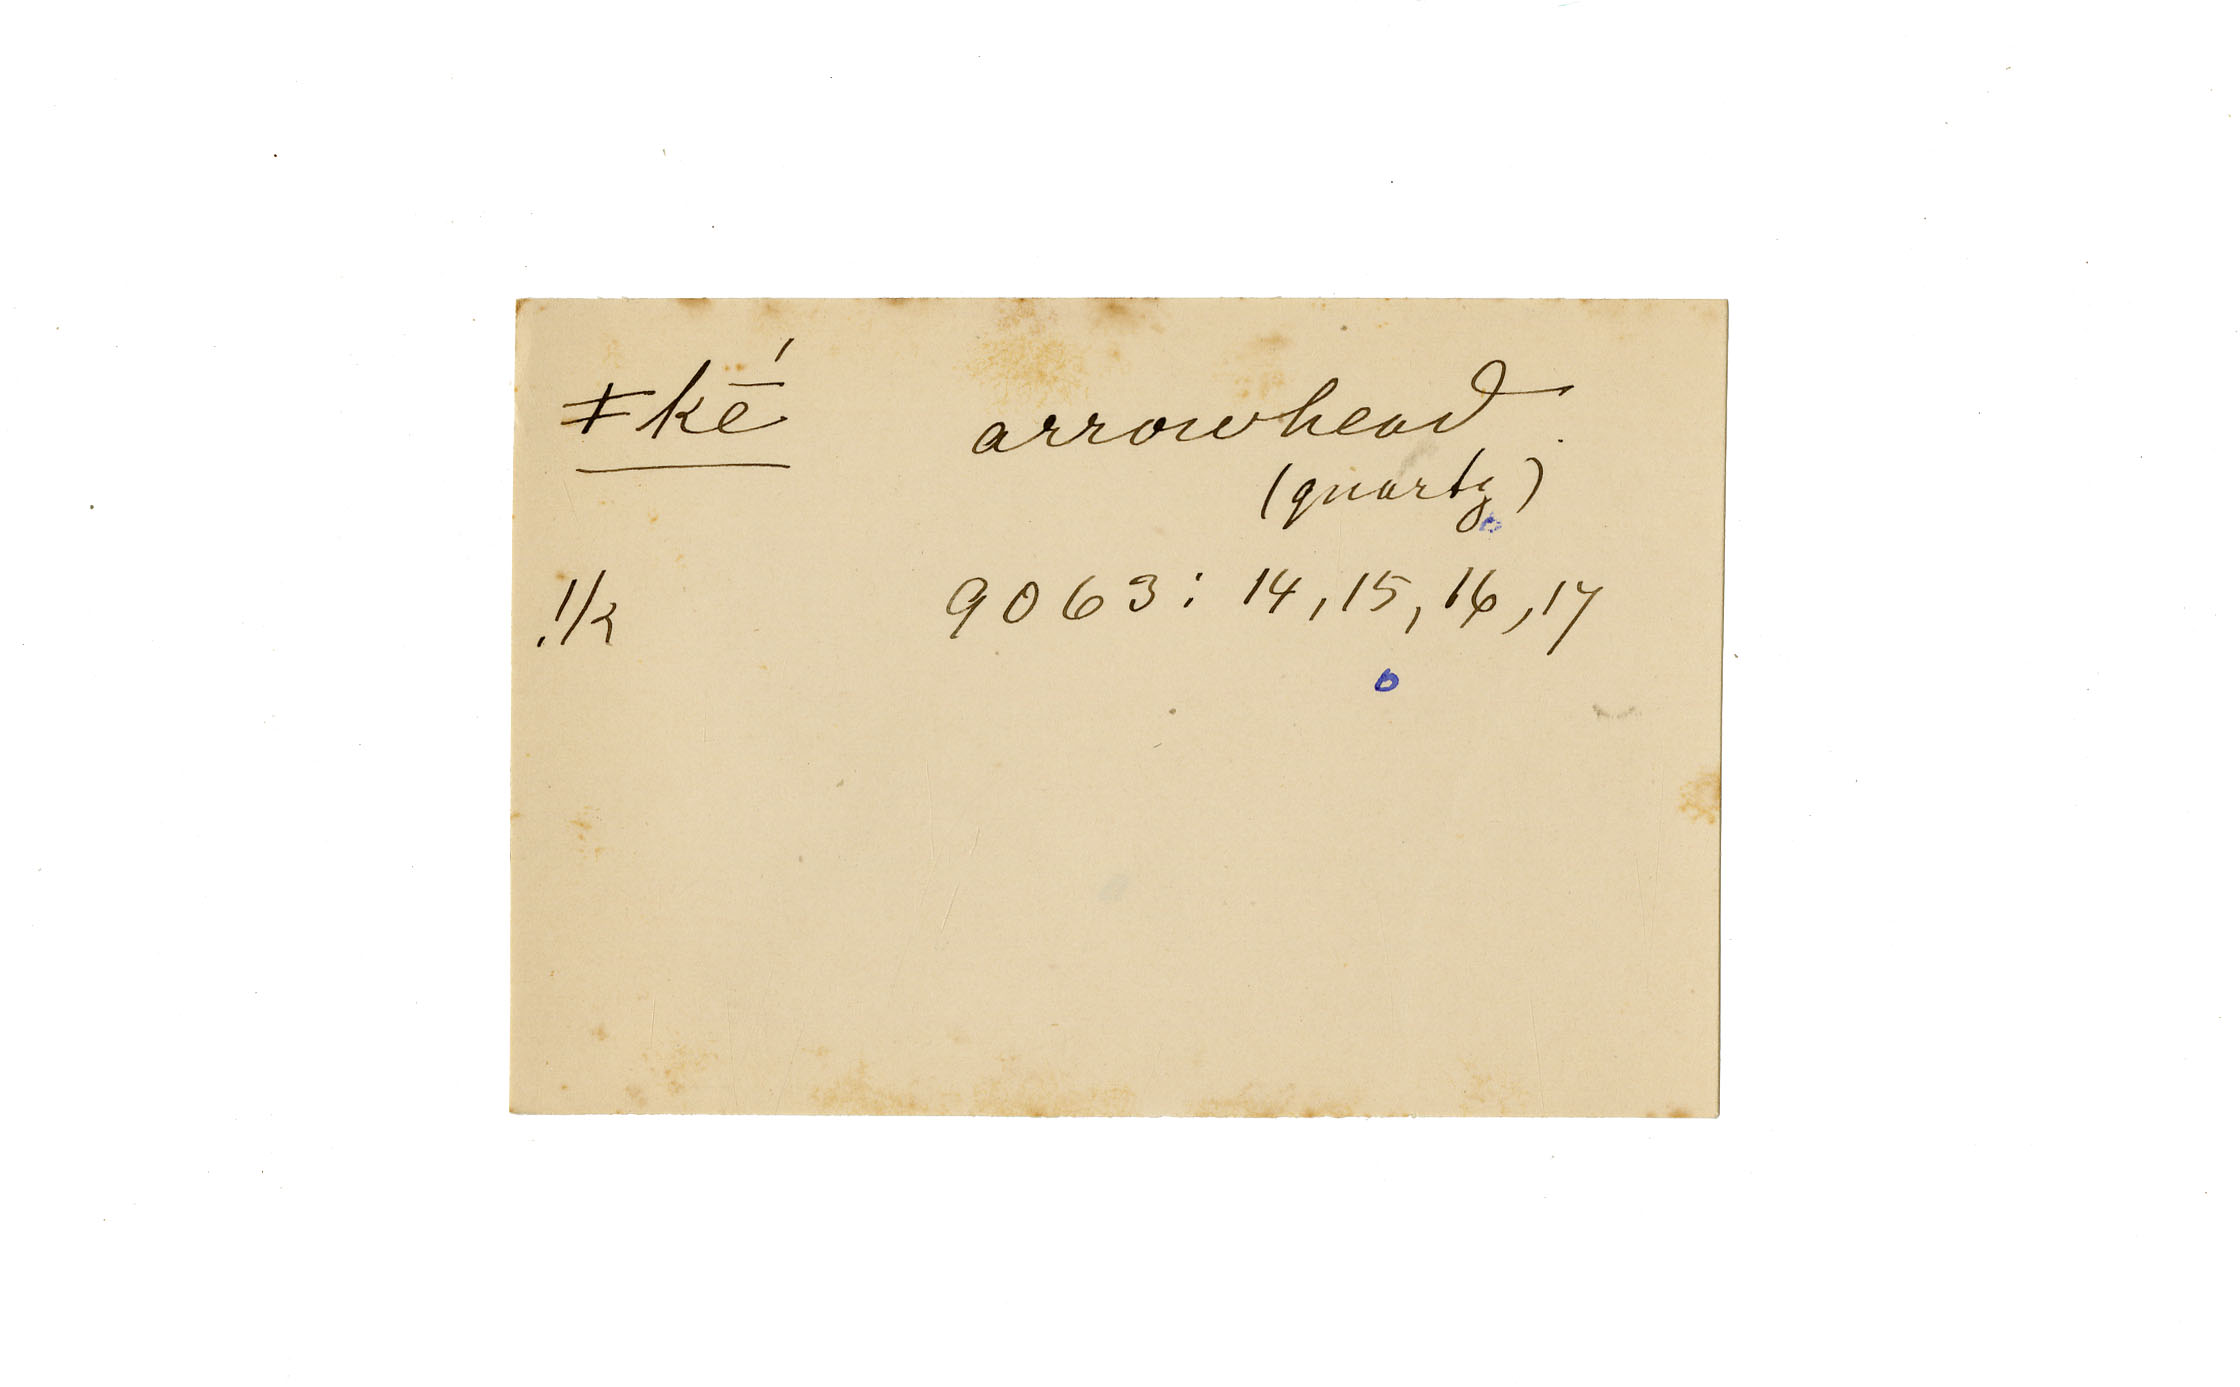 ǂkḗ arrowhead.
(quartz)
!k 9063: 14, 15, 16, 17